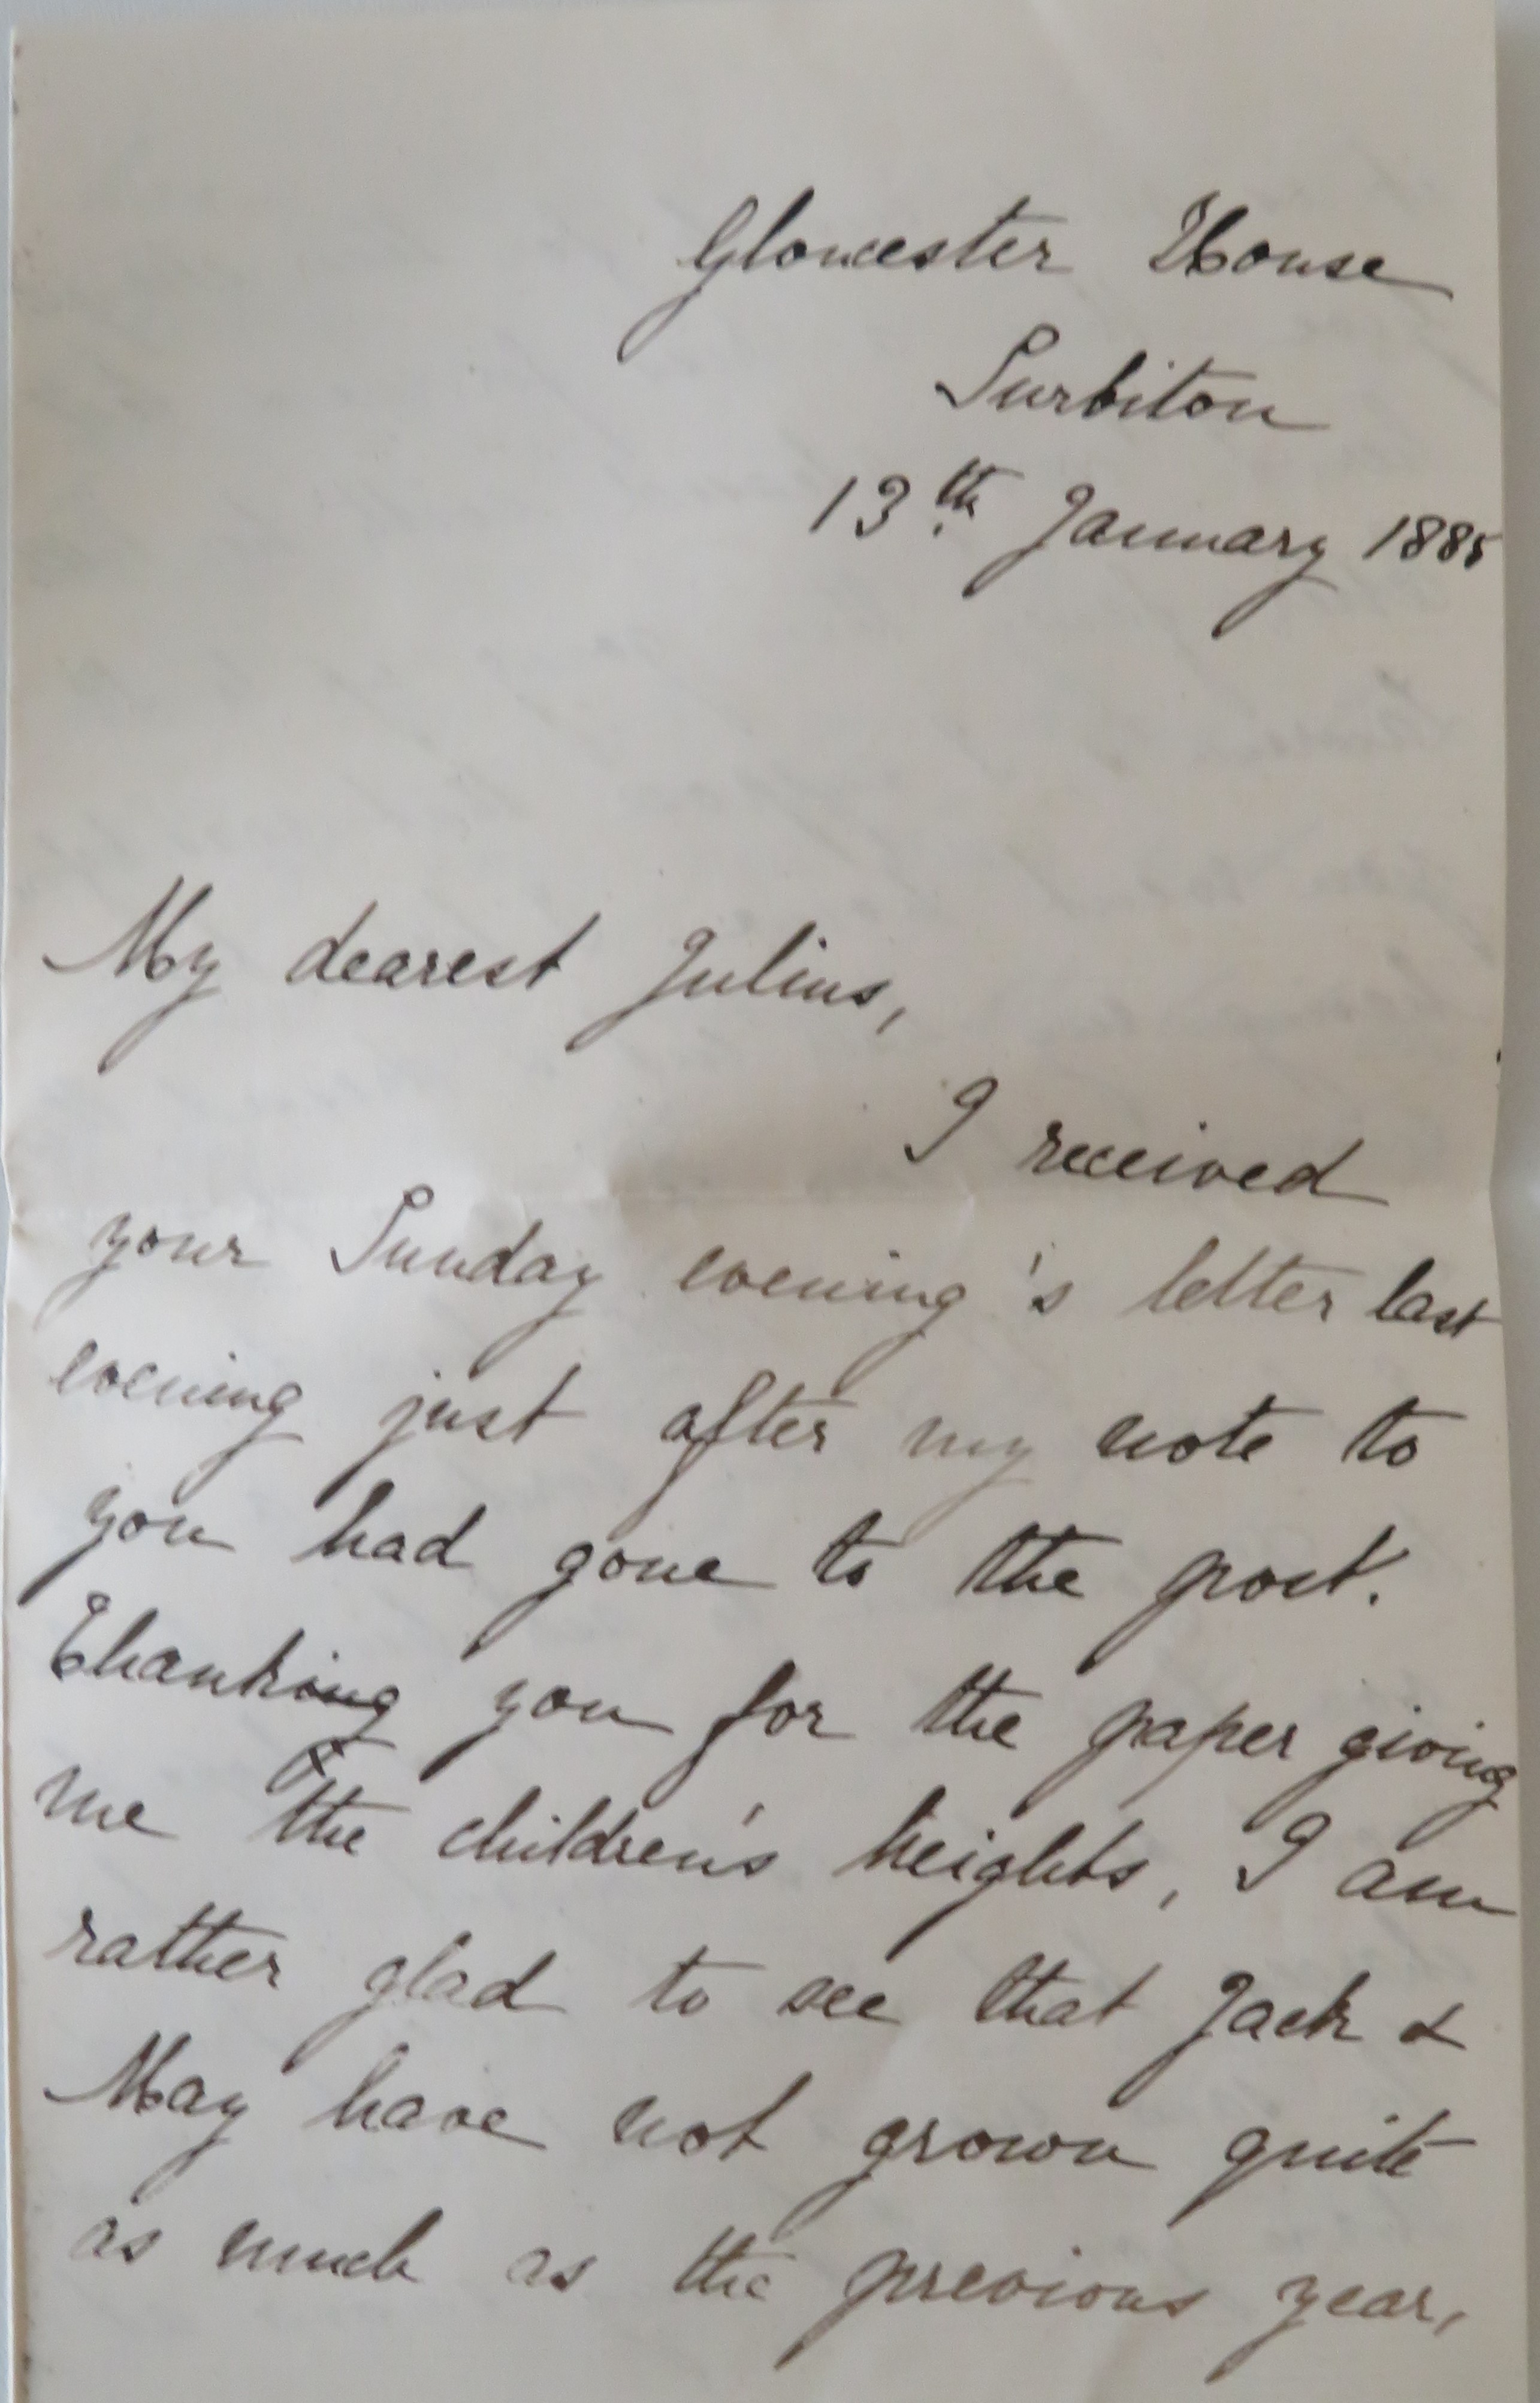 Gloucester House
Surbiton
13th January 1885
My dearest Julius,
I received
your Sunday evening's letter last
evening just after my note to
you had gone to the post.
Thanking you for the paper giving
me the children's heights, I am
rather glad to see that Jack &
May have not grown quite
as much as the previous year,